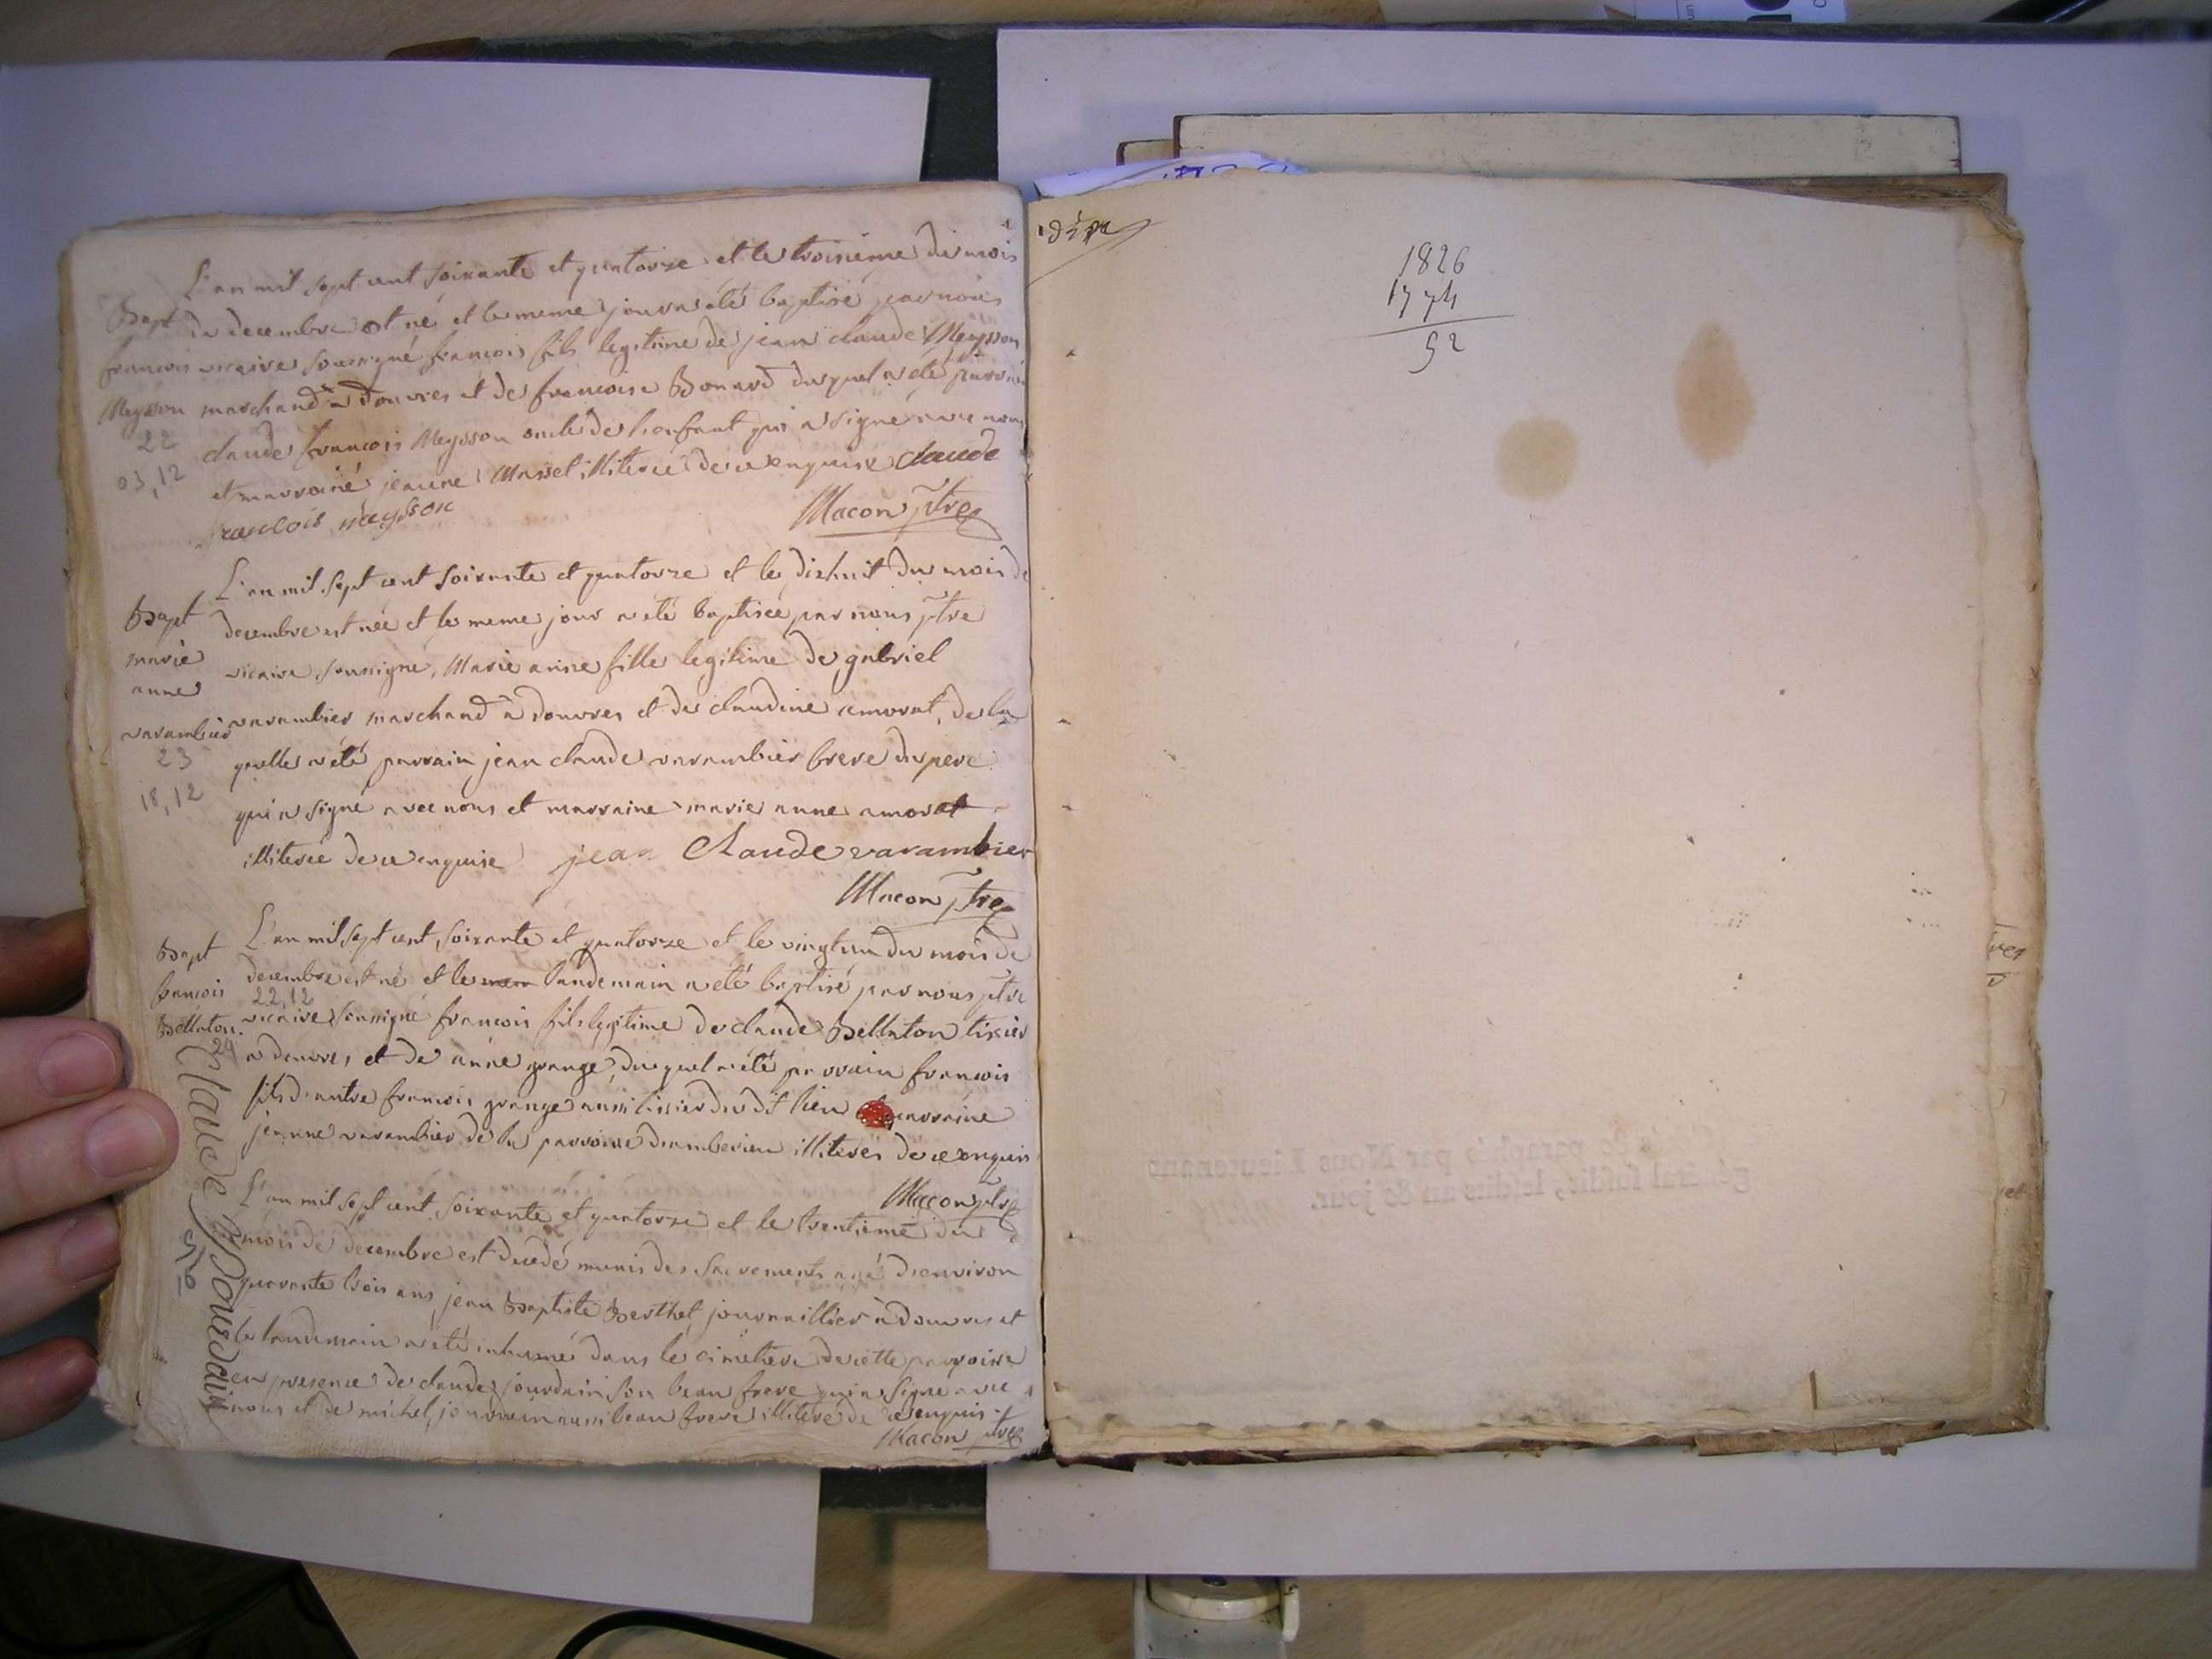 L'an mil sept cent soixante et quatorze et le troisieme du mois
Bapt de decembre est né et le meme jour a été baptisé par nous
francois vicaire soussigné francois fils legitime de jean claude Meysson
Meysson marchand a douvres et de francoise Bonard duquel a été parrain
22 claude francois Meysson oncle de l'enfant qui a signé avec nous
03,12 et marraine jeanne Massel illiterée de ce enquise claude
francois meysson Macon ptre
L'an mil sept cent soixante et quatorze et le dixhuit du mois de
Bapt decembre est née et le meme jour a été baptisée par nous ptre
marie vicaire soussigné, Marie anne fille legitime de gabriel
anne
varambier varambier marchand à douvres et de claudine amorat, de la
23 quelle a été parrain jean claude varambier frere du pere
18,12 qui a signé avec nous et marraine marie anne amorat
illiterée de ce enquise jean Claude varambier
Macon ptre
Bapt L'an mil sept cent soixante et quatorze et le vingt un du mois de
francois decembre est né et le landemain a été baptisé par nous ptre
22,12
Bellaton. vicaire soussigné francois fils legitime de claude Bellaton tixier
24 a douvres et de anne grange, duquel a été parrain francois
fils d'autre francois grange aussi tixier du dit lieu marraine
jeanne varambier de la parroisse d'amberieu illiterés de ce enquis
Macon ptre
L'an mil sept cent soixante et quatorze et le trentieme du
mois de decembre est decedé munis des sacrements agé d'environ
quarante trois ans jean Baptiste Berthet journaillier à douvres et
le landemain a été inhumé dans le cimetiere de cette parroisse
en presence de claude jourdain son beau frere qui a signé avec
nous et de michel jourdain aussi beau frere illiteré de ce enquis
Macon ptre
Claude Jourdain
1826
1774
52
paraphés par Nous Lieutenant
général susdit, lesdits an & jour.